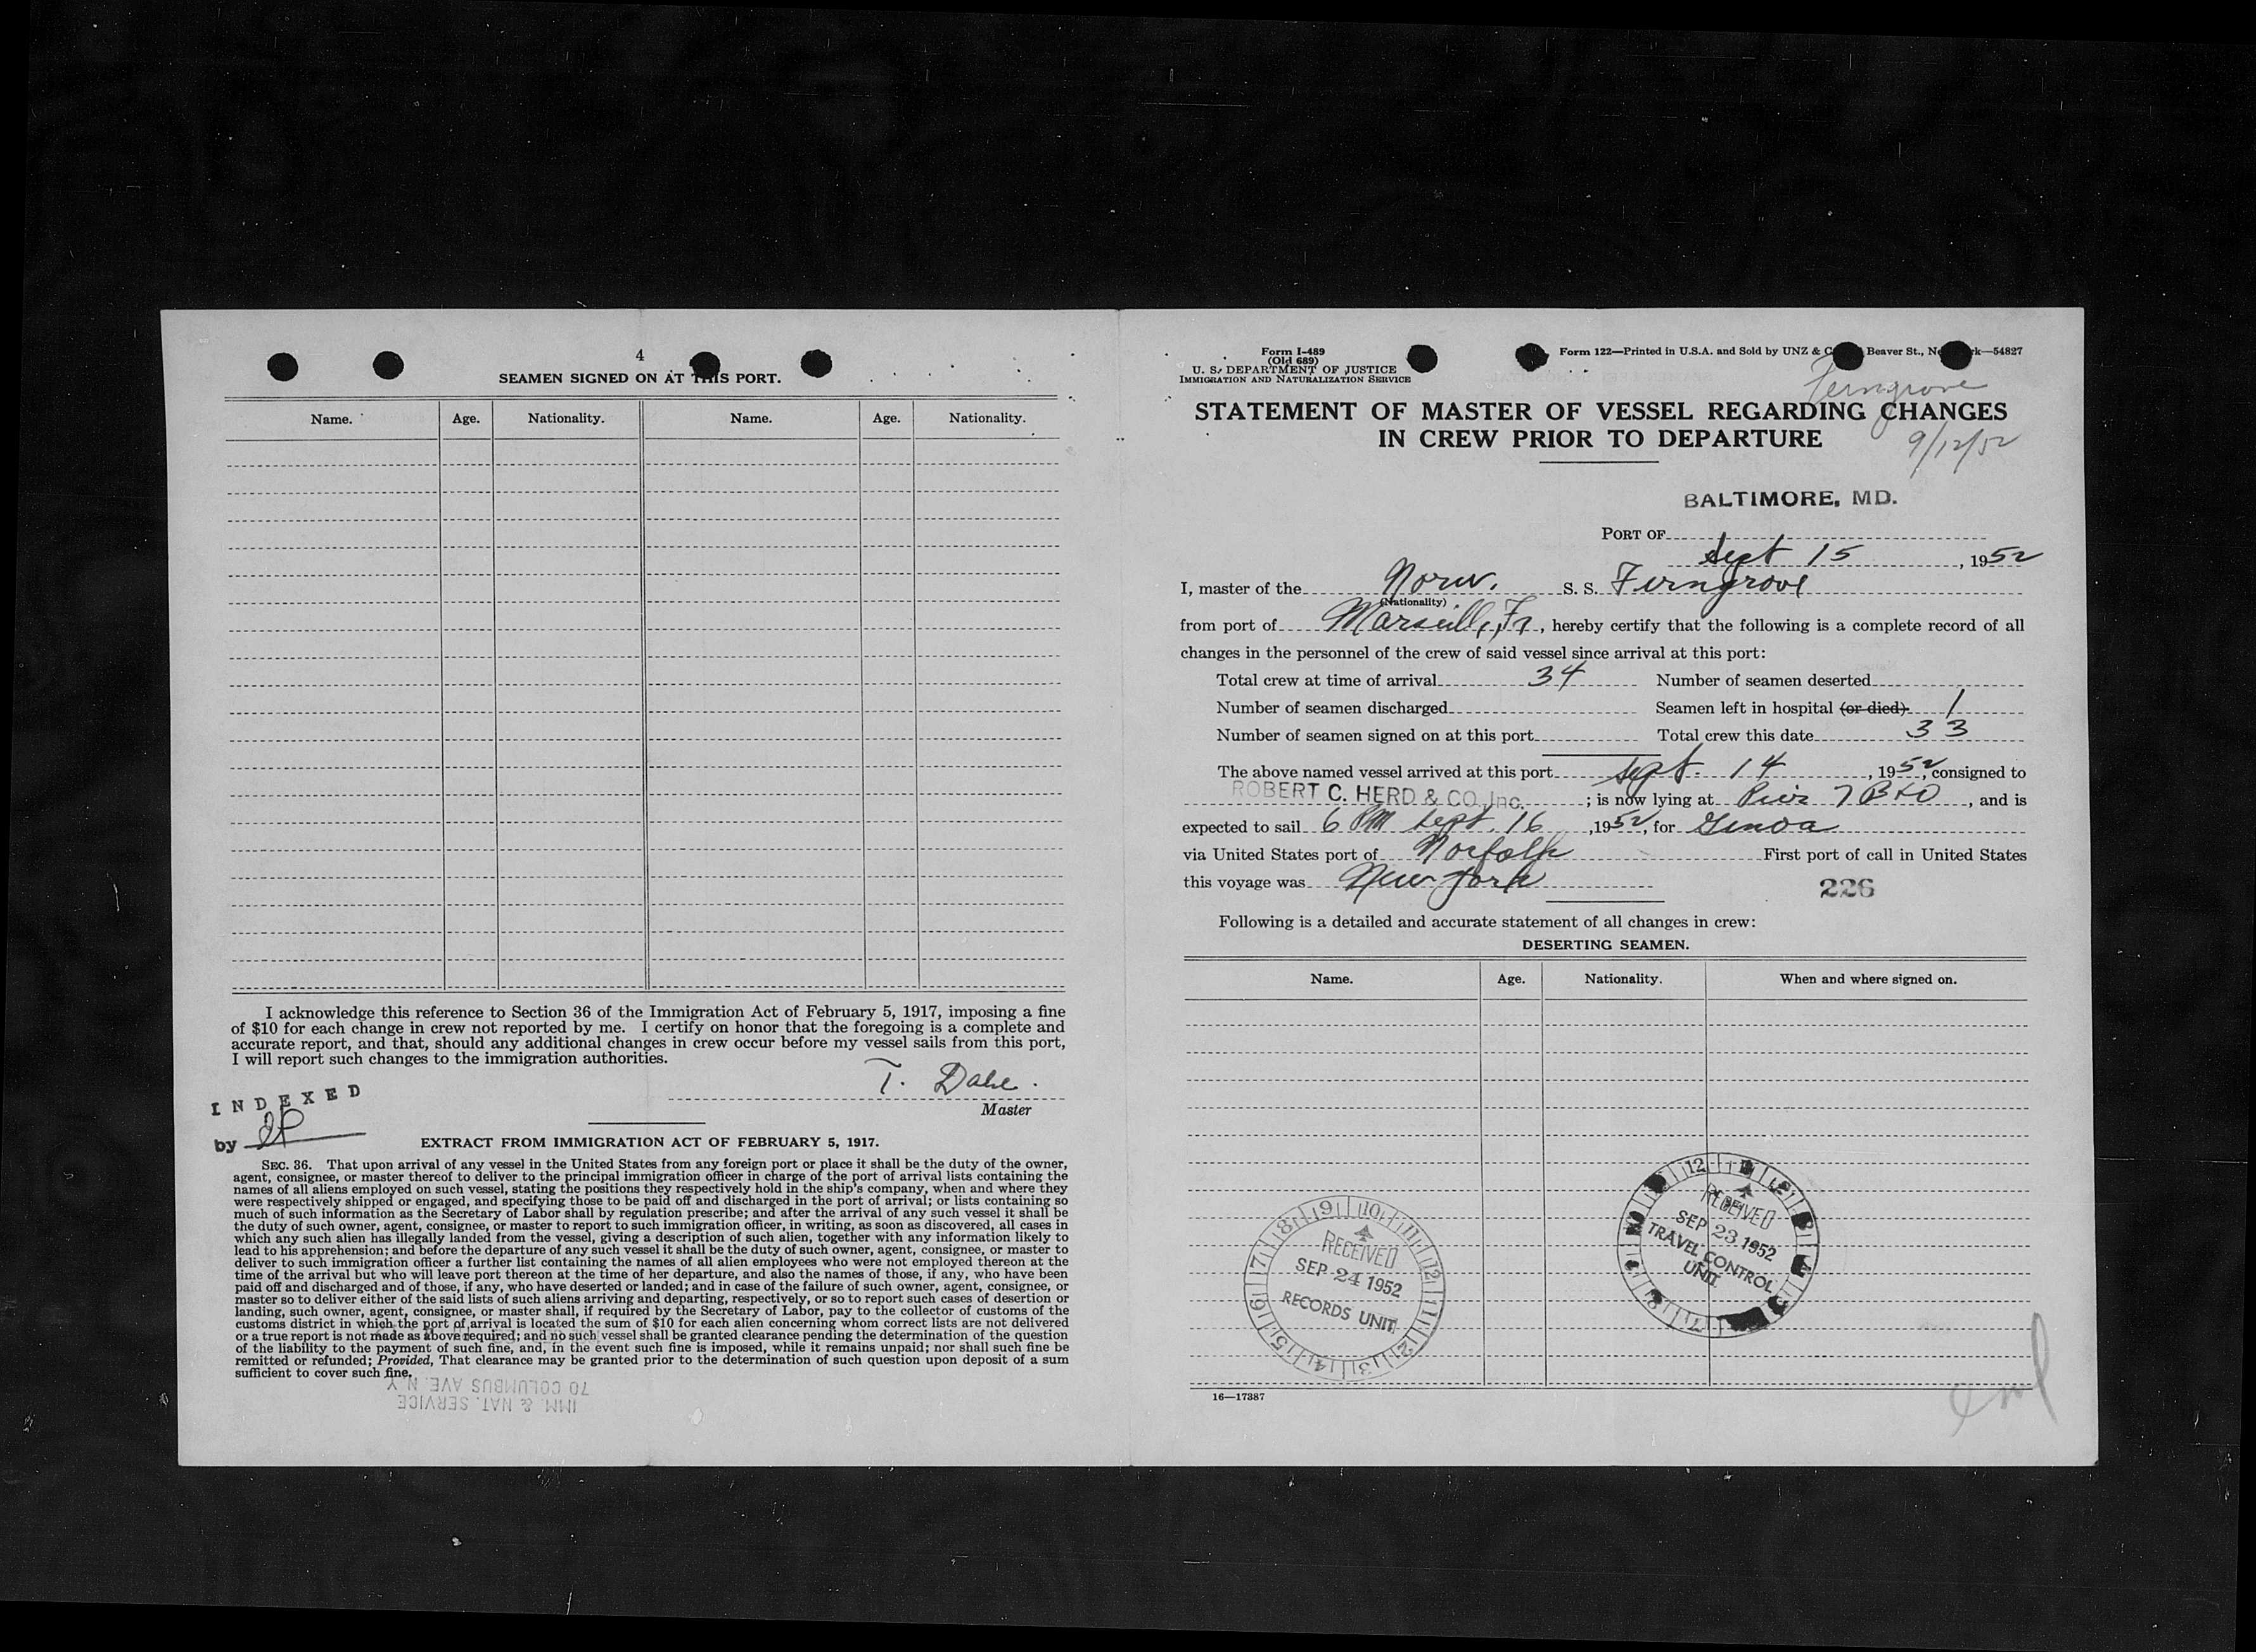 4
SEAMEN SIGNED ON AT THIS PORT.
Name. Age. Nationality. Name. Age. Nationality.
I acknowledge this reference to Section 36 of the Immigration Act of February 5, 1917, imposing a fine
of $10 for each change in crew not reported by me. I certify on honor that the foregoing is a complete and
accurate report, and that, should any additional changes in crew occur before my vessel sails from this port,
I will report such changes to the immigration authorities.
T. Dahl.
Master
INDEXED
by
EXTRACT FROM IMMIGRATION ACT OF FEBRUARY 5, 1917.
SEC. 36. That upon arrival of any vessel in the United States from any foreign port or place it shall be the duty of the owner,
agent, consignee, or master thereof to deliver to the principal immigration officer in charge of the port of arrival lists containing the
names of all aliens employed on such vessel, stating the positions they respectively hold in the ship's company, when and where they
were respectively shipped or engaged, and specifying those to be paid off and discharged in the port of arrival; or lists containing so
much of such information as the Secretary of Labor shall by regulation prescribe; and after the arrival of any such vessel it shall be
the duty of such owner, agent, consignee, or master to report to such immigration officer, in writing, as soon as discovered, all cases in
which any such alien has illegally landed from the vessel, giving a description of such alien, together with any information likely to
lead to his apprehension; and before the departure of any such vessel it shall be the duty of such owner, agent, consignee, or master to
deliver to such immigration officer a further list containing the names of all alien employees who were not employed thereon at the
time of the arrival but who will leave port thereon at the time of her departure, and also the names of those, if any, who have been
paid off and discharged and of those, if any, who have deserted or landed; and in case of the failure of such owner, agent, consignee, or
master so to deliver either of the said lists of such aliens arriving and departing, respectively, or so to report such cases of desertion or
landing, such owner, agent, consignee, or master shall, if required by the Secretary of Labor, pay to the collector of customs of the
customs district in which the port of arrival is located the sum of $10 for each alien concerning whom correct lists are not delivered
or a true report is not made as above required; and no such vessel shall be granted clearance pending the determination of the question
of the liability to the payment of such fine, and, in the event such fine is imposed, while it remains unpaid; nor shall such fine be
remitted or refunded; Provided, That clearance may be granted prior to the determination of such question upon deposit of a sum
sufficient to cover such fine.
70 COLUMBUS AVE. N. Y.
IMM. & NAT. SERVICE
Form I-489
(Old 689)
U. S. DEPARTMENT OF JUSTICE
IMMIGRATION AND NATURALIZATION SERVICE
Form 122—Printed in U.S.A. and Sold by UNZ & C Beaver St., Ne rk—54827
Ferngrove
STATEMENT OF MASTER OF VESSEL REGARDING CHANGES
IN CREW PRIOR TO DEPARTURE
9/12/52
BALTIMORE, MD.
PORT OF
Sept 15, 1952
I, master of the Norw. S. S. Ferngrove
(Nationality)
from port of Marseille, Fr, hereby certify that the following is a complete record of all
changes in the personnel of the crew of said vessel since arrival at this port:
Total crew at time of arrival 34 Number of seamen deserted
Number of seamen discharged Seamen left in hospital (or died) 1
Number of seamen signed on at this port Total crew this date 33
The above named vessel arrived at this port Sept. 14, 1952, consigned to
ROBERT C. HERD & CO. Inc. ; is now lying at Pier 7 B&O, and is
expected to sail 6 PM Sept. 16, 1952, for Genoa
via United States port of Norfolk First port of call in United States
this voyage was New York
226
Following is a detailed and accurate statement of all changes in crew:
DESERTING SEAMEN.
Name. Age. Nationality. When and where signed on.
RECEIVED
SEP 23 1952
TRAVEL CONTROL
UNIT
RECEIVED
SEP 24 1952
RECORDS UNIT
16—17387